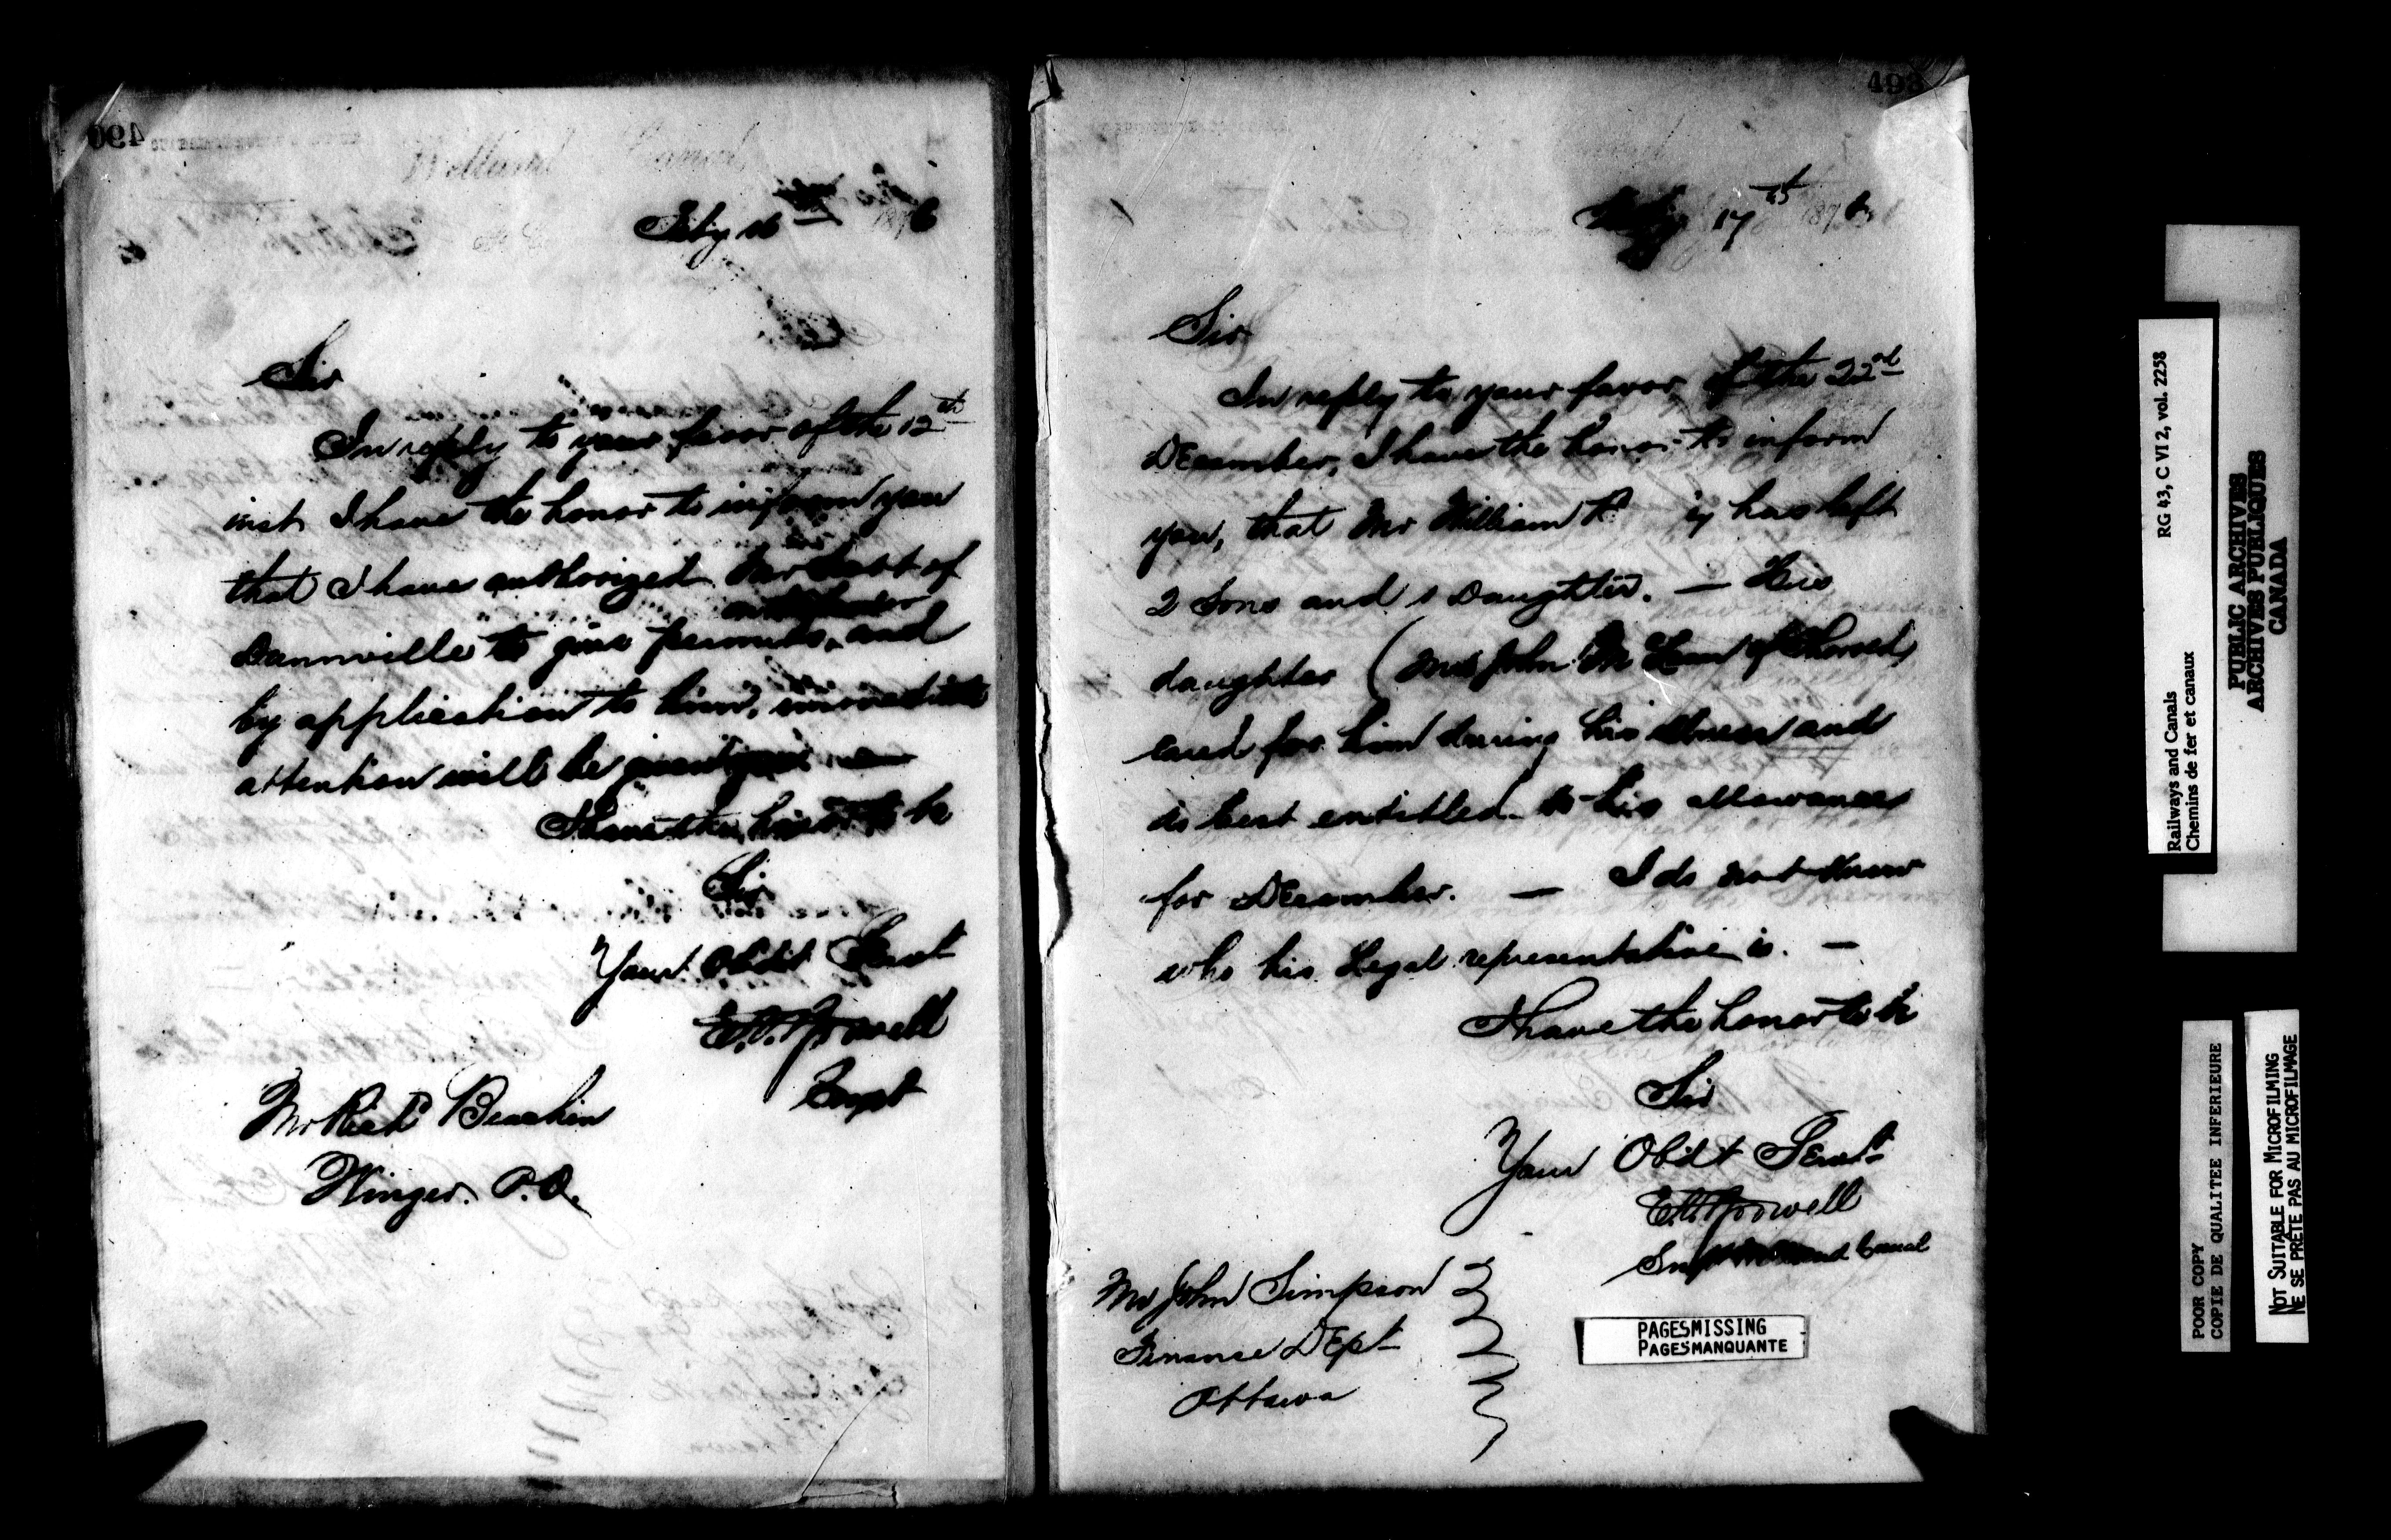 490
Welland Canal
Feby 16th 1876
Sir
In reply to your favor of the 12th
inst I have the honor to inform you
that I have authorized Mr of
Dunnville to give permits, and
by application to him, immediate
attention will be given
I have the honor to be
Sir
Your Obdt Servt
E.V. Bodwell
Supt
Mr Richd
Winger. P.O.
493
17th 1876
Sir
In reply to your favor of the 22nd
December, I have the honor to inform
you, that Mr William has left
2 Sons and 1 Daughter. — His
daughter (Mrs John of Thorold)
cared for him during his illness and
is best entitled to his allowance
for December. — I do not know
who his Legal representative is. —
I have the honor to be
Sir
Your Obdt Servt
E.V. Bodwell
Supt Welland Canal
Mr John Simpson
Finance DEpt
Ottawa
PAGES MISSING
PAGES MANQUANTE
Railways and Canals RG 43, C VI 2, vol. 2258
Chemins de fer et canaux
PUBLIC ARCHIVES
ARCHIVES PUBLIQUES
CANADA
POOR COPY
COPIE DE QUALITEE INFERIEURE
NOT SUITABLE FOR MICROFILMING
NE SE PRÊTE PAS AU MICROFILMAGE